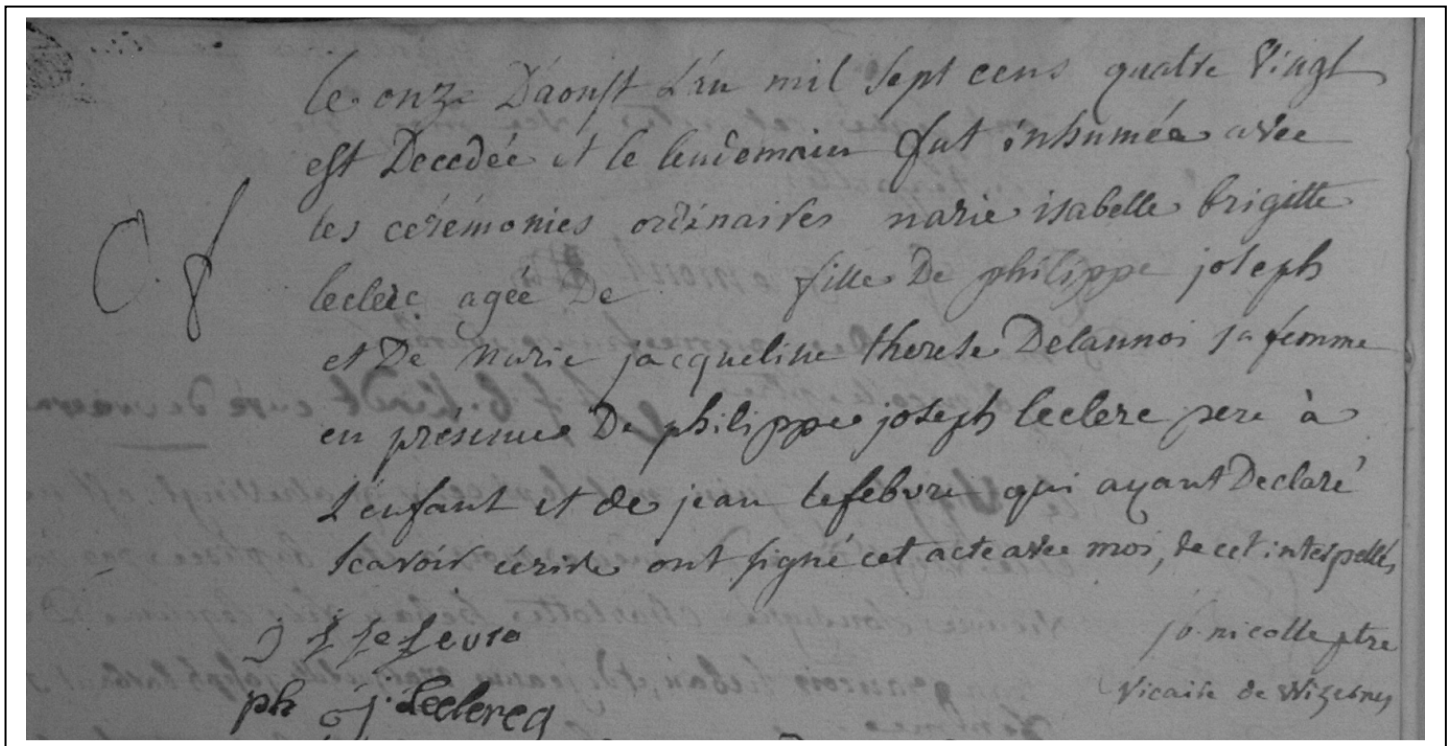 le onze Daoust L'an mil sept cens quatre Vingt
est Decedée et le lendemain fut inhumée avec
les cérémonies ordinaires marie isabelle brigitte
leclerc agée De fille De philippe joseph
et De Marie jacqueline therese Delannoi sa femme
en présence De philippe joseph leclerc pere à
L'enfant et de jean lefebvre qui ayant Declaré
scavoir écrire ont signé cet acte avec moi, de cet interpellés
C. f
j f le fevre
ph j. Leclercq
nicolle ptre
Vicaire de Wizernes